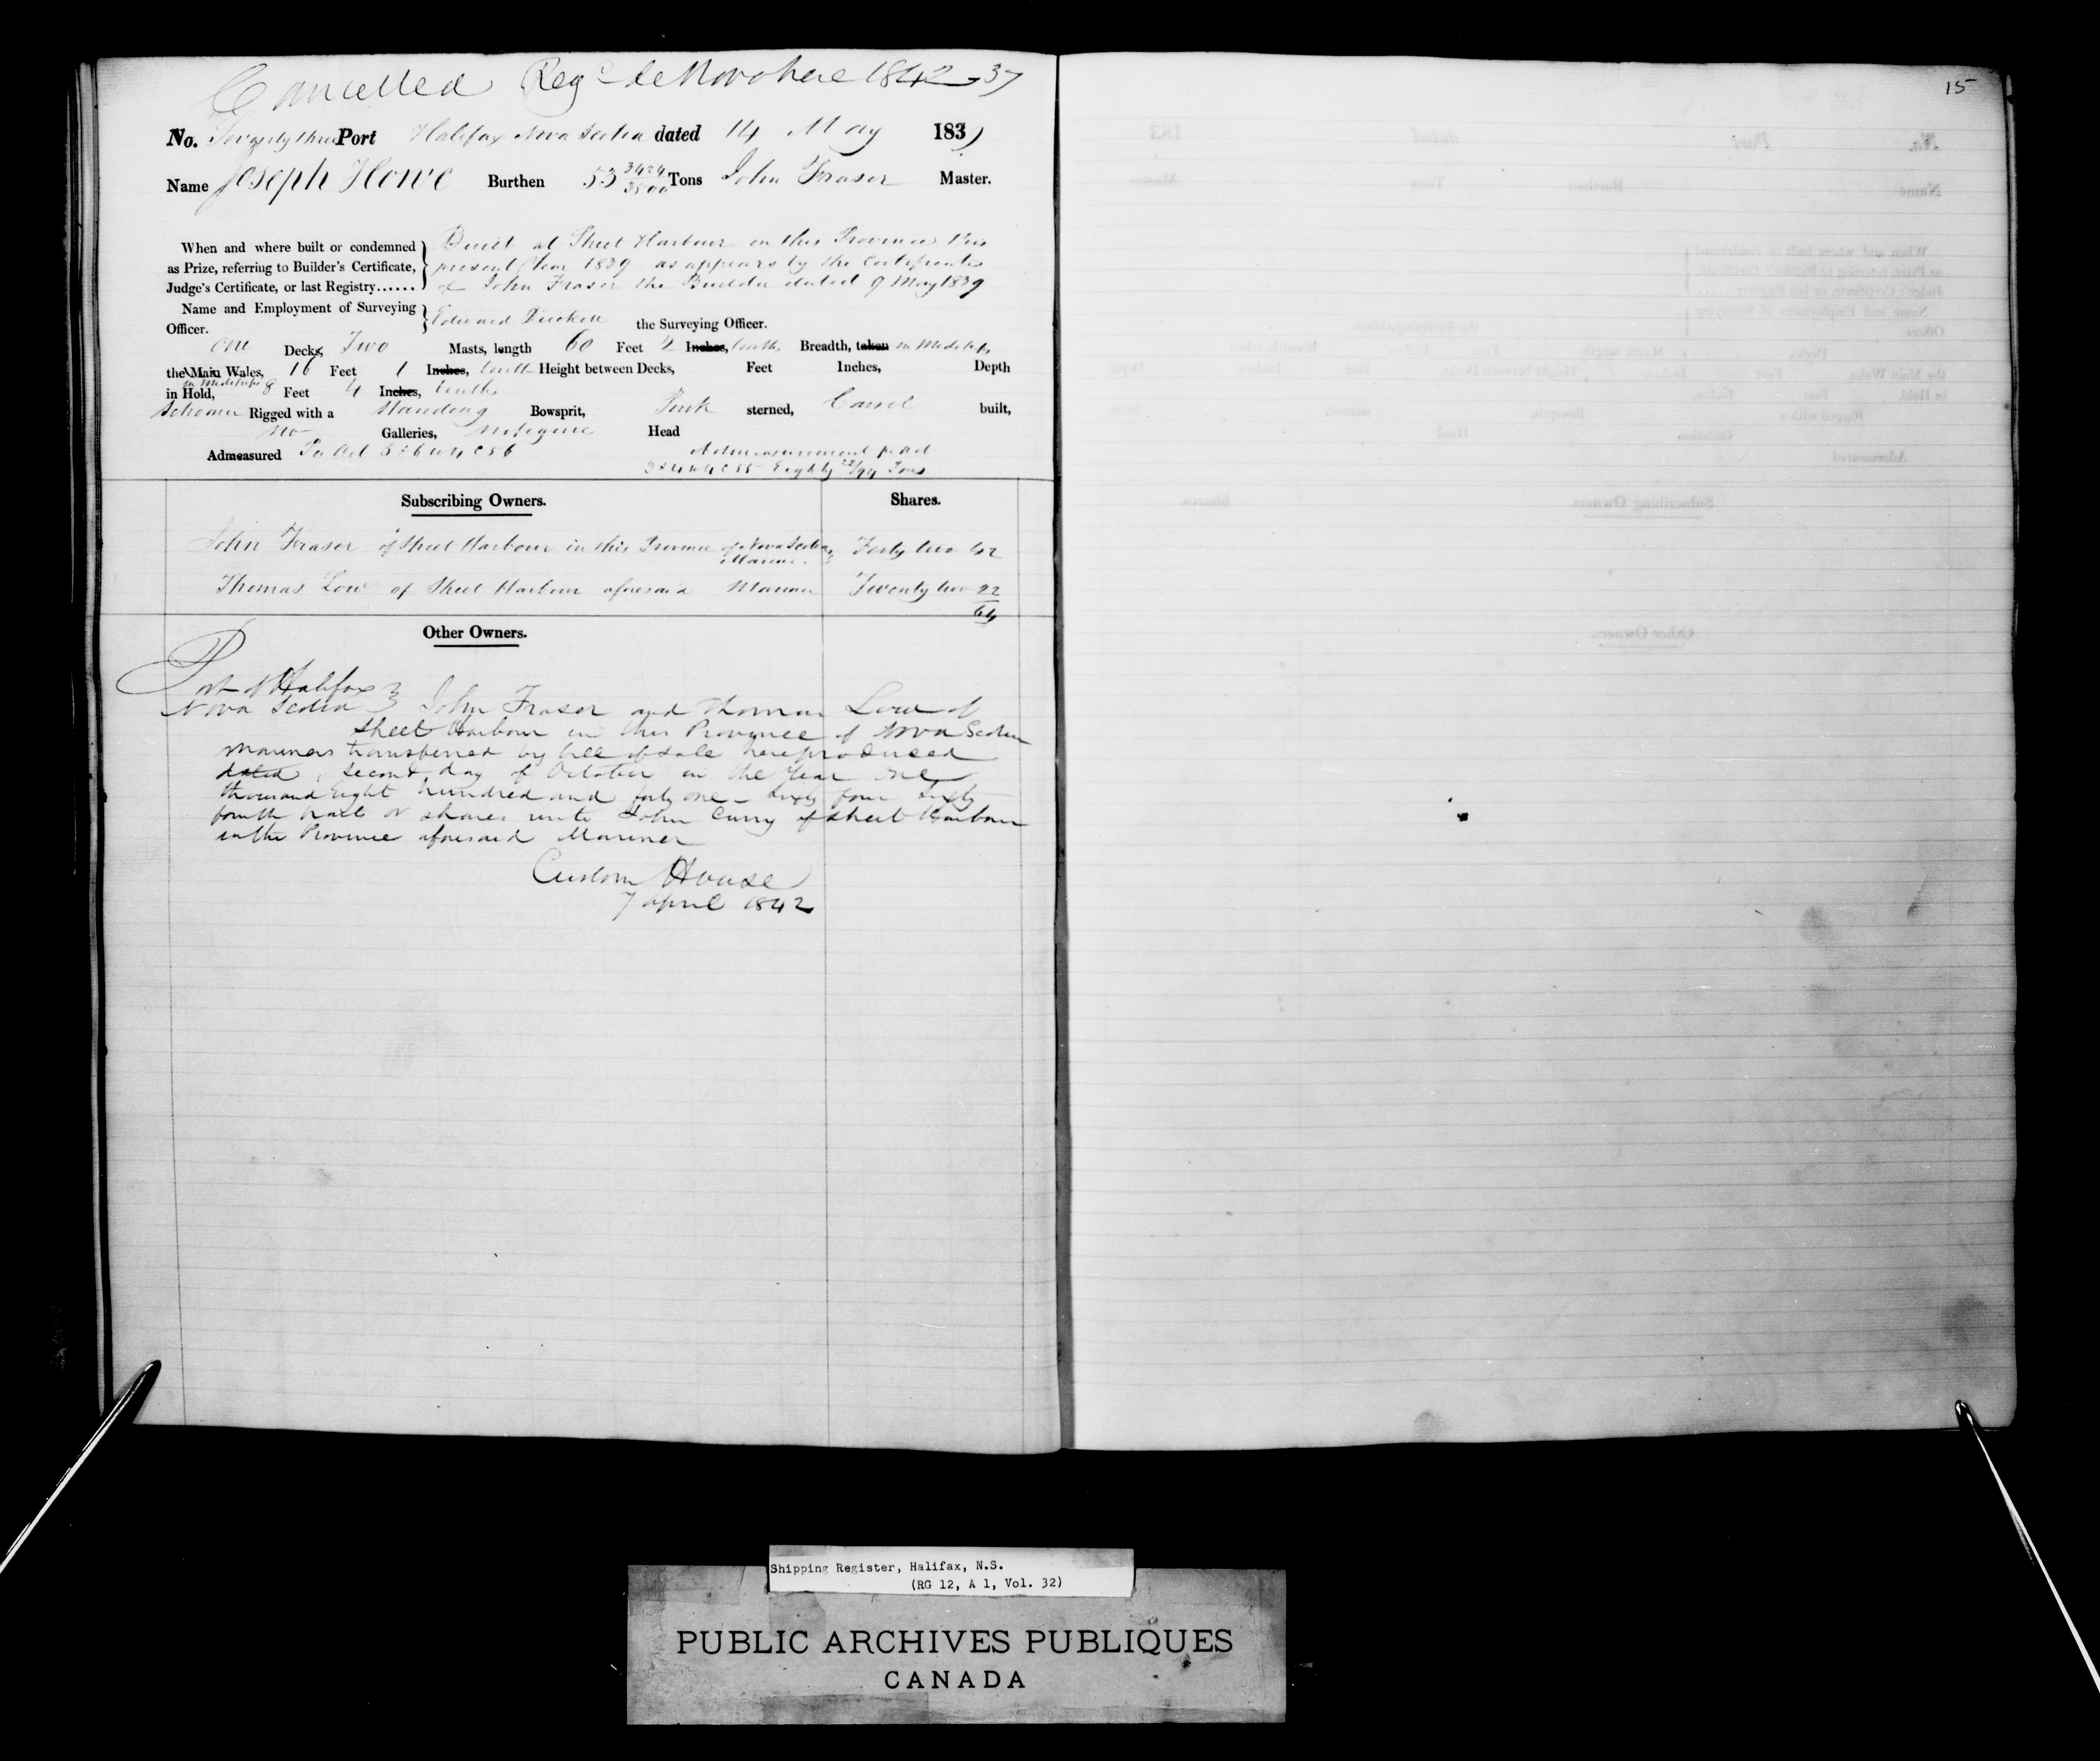 Cancelled Regd de Novo here 1842 - 37
No. Twenty three Port Halifax Nova Scotia dated 14 May 1839
Name Joseph Howe Burthen 53 3424/3500 Tons John Fraser Master.
When and where built or condemned as Prize, referring to Builder's Certificate, Judge's Certificate, or last Registry......
Built at Sheet Harbour in this Province this
present Year 1839 as appears by the Certificate
of John Fraser the Builder dated 9 May 1839
Name and Employment of Surveying Officer. Edward Duckett the Surveying Officer.
One Decks, Two Masts, length 60 Feet 2 Inches, tenths Breadth, taken in Midships
the Main Wales, 16 Feet 1 Inches, tenth Height between Decks, Feet Inches, Depth
in Midships
in Hold, 8 Feet 4 Inches, tenths
Schooner Rigged with a Standing Bowsprit, Pink sterned, Carvel built,
no Galleries, no figure Head
Admeasured Pr Act 5 & 6 W 4 C 56 Admeasurement pr act
3 & 4 W 4 C 55 Eighty Tons
Subscribing Owners. Shares.
John Fraser of Sheet Harbour in this Province of Nova Scotia Forty two 42
Mariner
Thomas Low of Sheet Harbour aforesaid Mariner Twenty two 22
64
Other Owners.
Port of Halifax
Nova Scotia John Fraser and Thomas Low of
Sheet Harbour in this Province of Nova Scotia
Mariners transferred by bill of sale here produced
dated, second day of October in the Year One
thousand Eight hundred and forty one - Sixty four Sixty
fourth parts or shares unto John Curry of Sheet Harbour
in the Province aforesaid Mariner
Custom House
7 April 1842
15
Shipping Register, Halifax, N.S.
(RG 12, A 1, Vol. 32)
PUBLIC ARCHIVES PUBLIQUES
CANADA